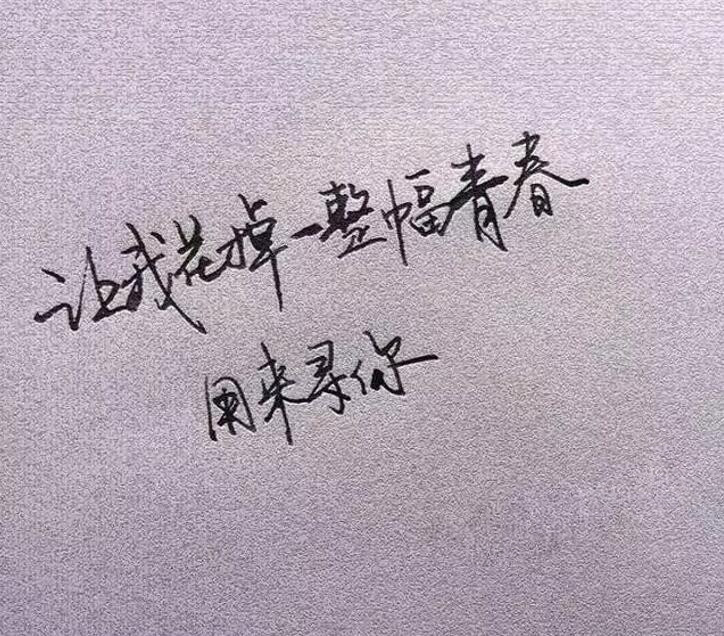 让我花掉一整幅青春
用来寻你